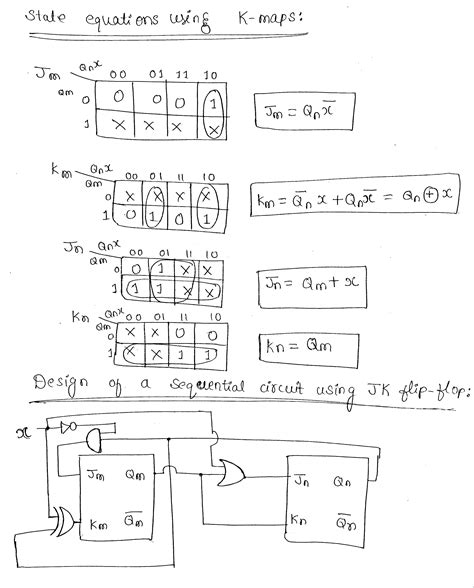 State equations using K-maps:
Jm Qnx 00 01 11 10
Qm 0 0 0 0 1
1 X X X X
Jm = Qnx̅
Km Qnx 00 01 11 10
Qm 0 X X X X
1 0 1 0 1
Km = Q̅nx + Qnx̅ = Qn ⊕ x
Jn Qnx 00 01 11 10
Qm 0 0 1 X X
1 1 1 X X
Jn = Qm + x
Kn Qnx 00 01 11 10
Qm 0 X X 0 0
1 X X 1 1
Kn = Qm
Design of a sequential circuit using JK flip-flop:
x
Jm Qm
Km Q̅m
Jn Qn
Kn Q̅n